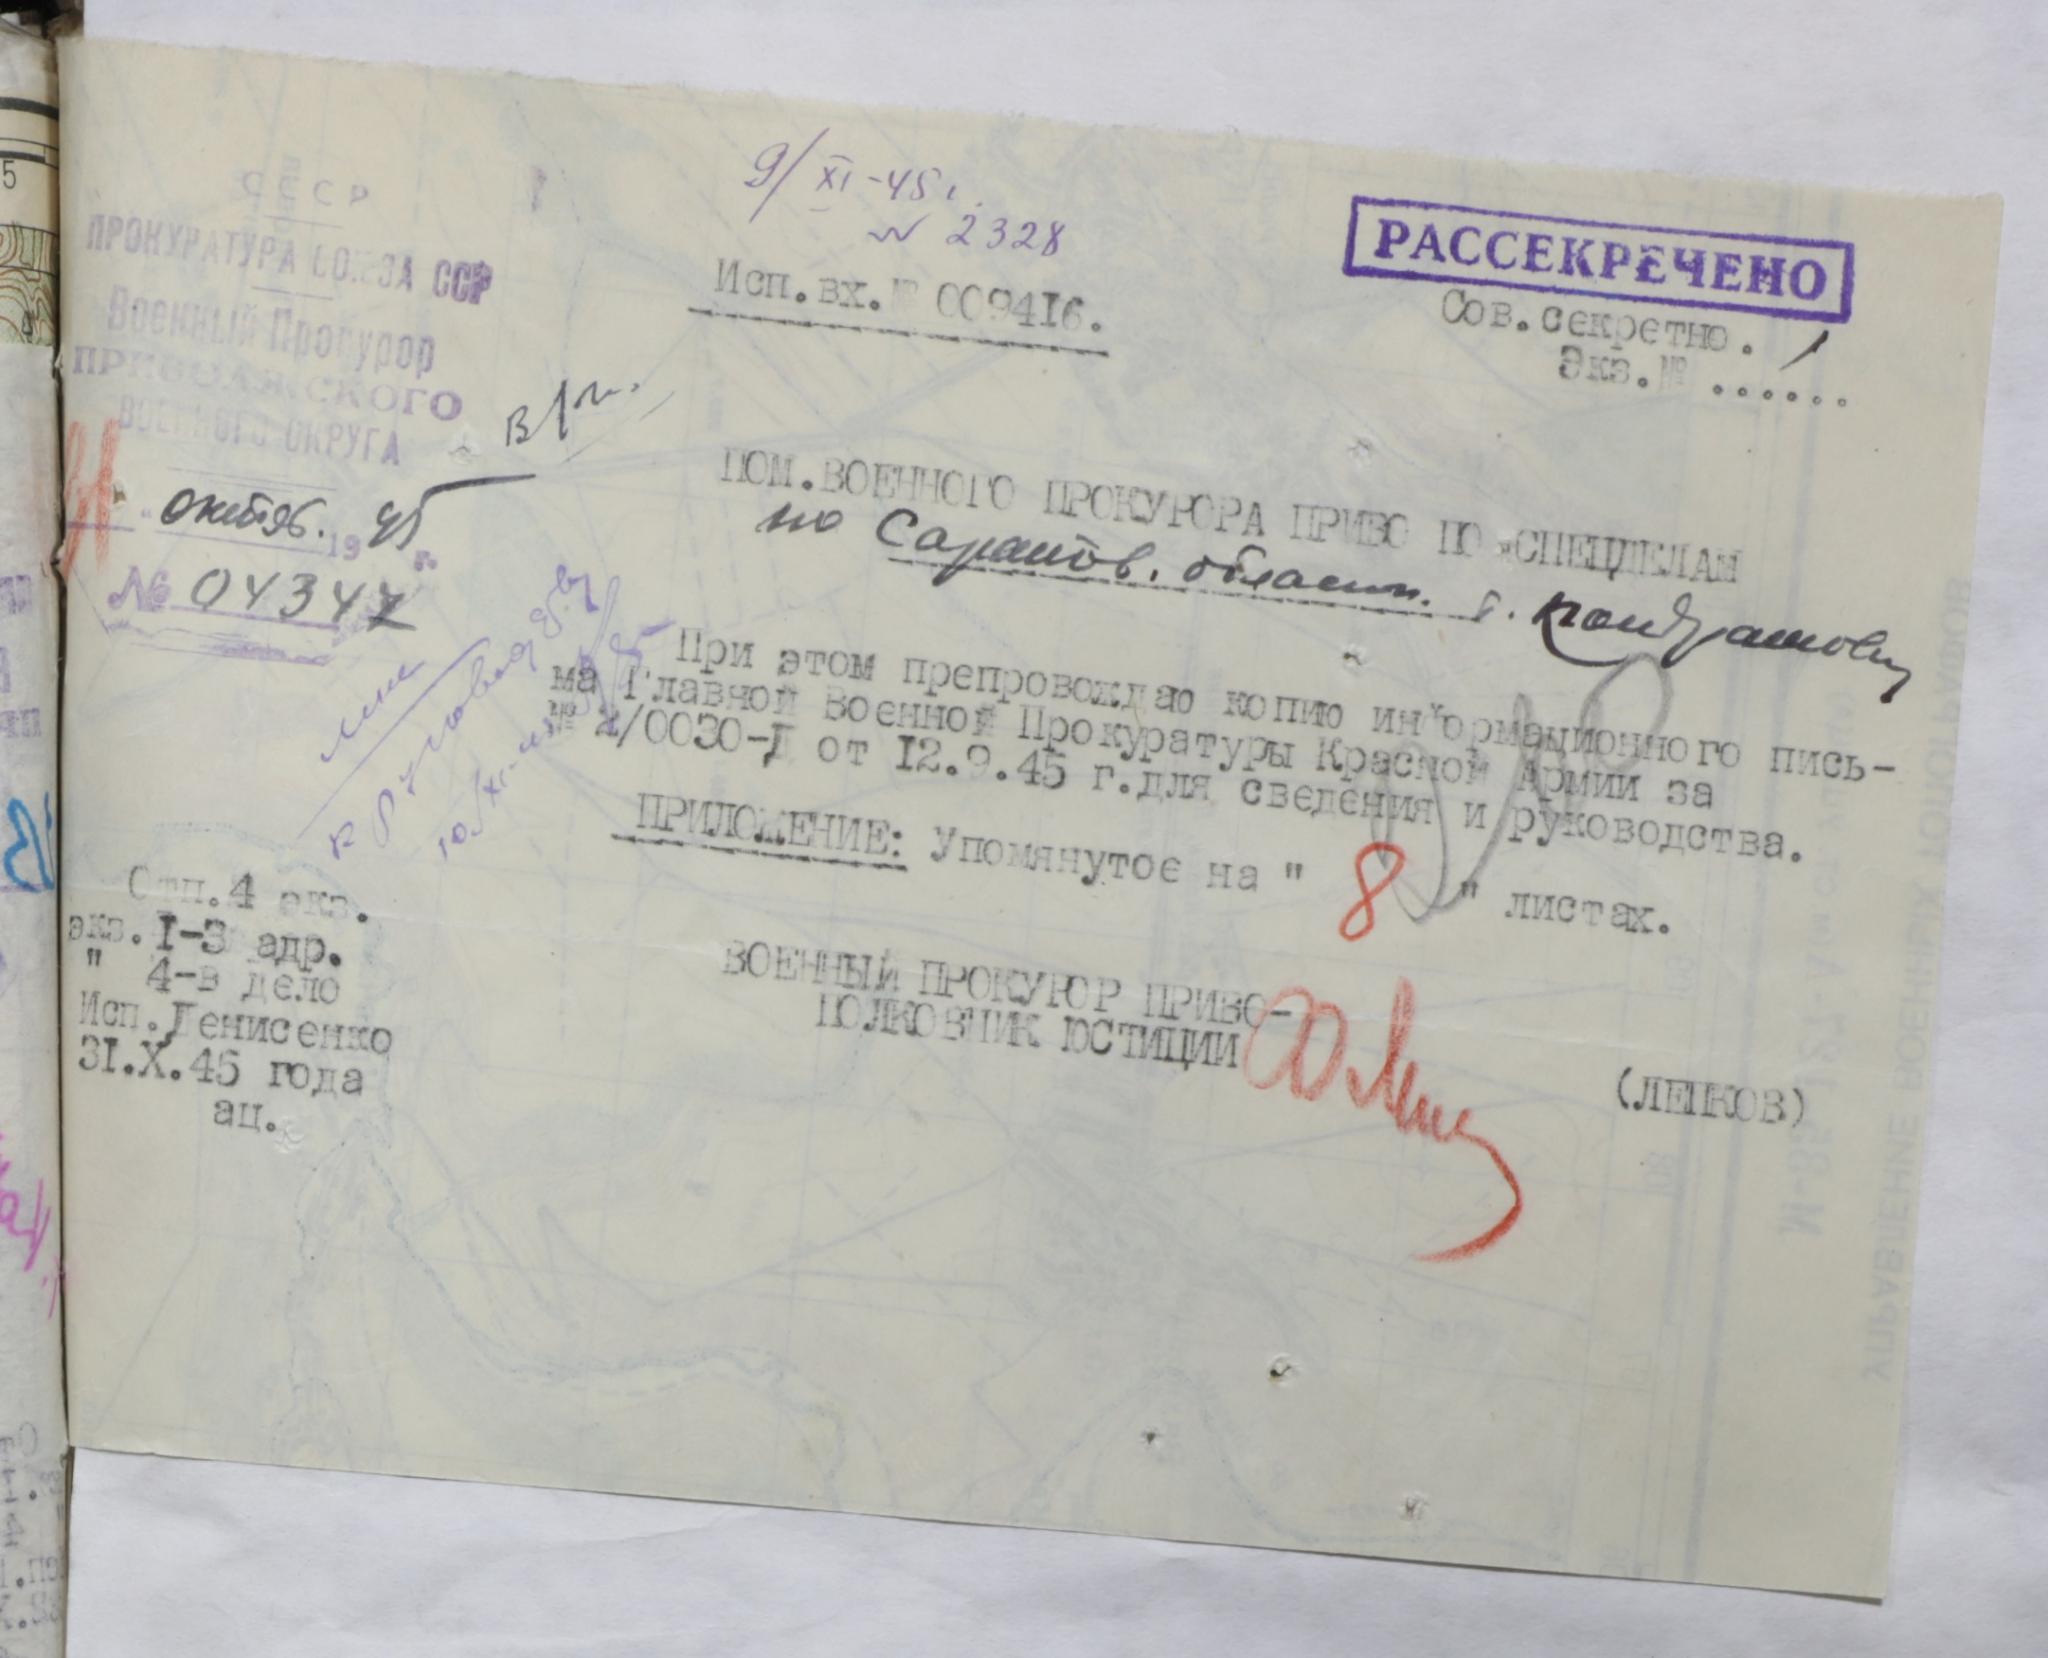 9/XI-45 г.
№ 2328
СССР
ПРОКУРАТУРА СОЮЗА ССР
Военный Прокурор
ПРИВОЛЖСКОГО
ВОЕННОГО ОКРУГА
31 " октяб. 1945 г.
№ 04347
Исп.вх.№ 009416.
РАССЕКРЕЧЕНО
Сов.секретно.
Экз.№ ...... 1
ПОМ.ВОЕННОГО ПРОКУРОРА ПРИВО ПО СПЕЦДЕЛАМ
по Саратов. област. т. Кондрашову
При этом препровождаю копию информационного пись-
ма Главной Военной Прокуратуры Красной Армии за
№ 2/0030-Д от 12.9.45 г.для сведения и руководства.
ПРИЛОЖЕНИЕ: Упомянутое на " 8 " листах.
к руководству
10/XI-45
ВОЕННЫЙ ПРОКУРОР ПРИВО-
ПОЛКОВНИК ЮСТИЦИИ
(ЛЕПКОВ)
Отп.4 экз.
экз.I-3 адр.
" 4-в дело
Исп.Денисенко
31.X.45 года
ац.
УПРАВЛЕНИЕ ВОЕННЫХ ТОПОГРАФОВ
5